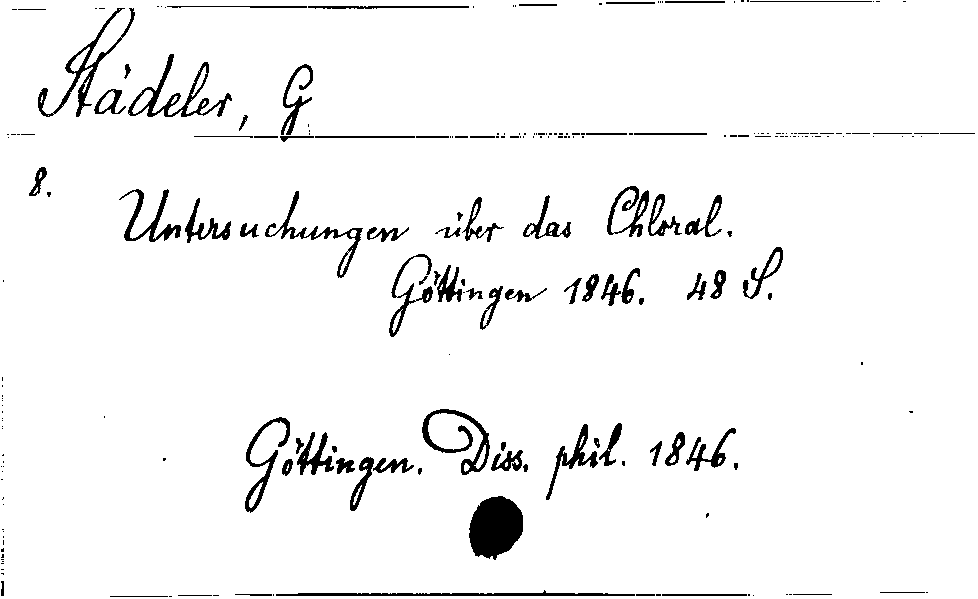 Städeler, G
8.
Untersuchungen über das Chloral.
Göttingen 1846. 48 S.
Göttingen. Diss. phil. 1846.